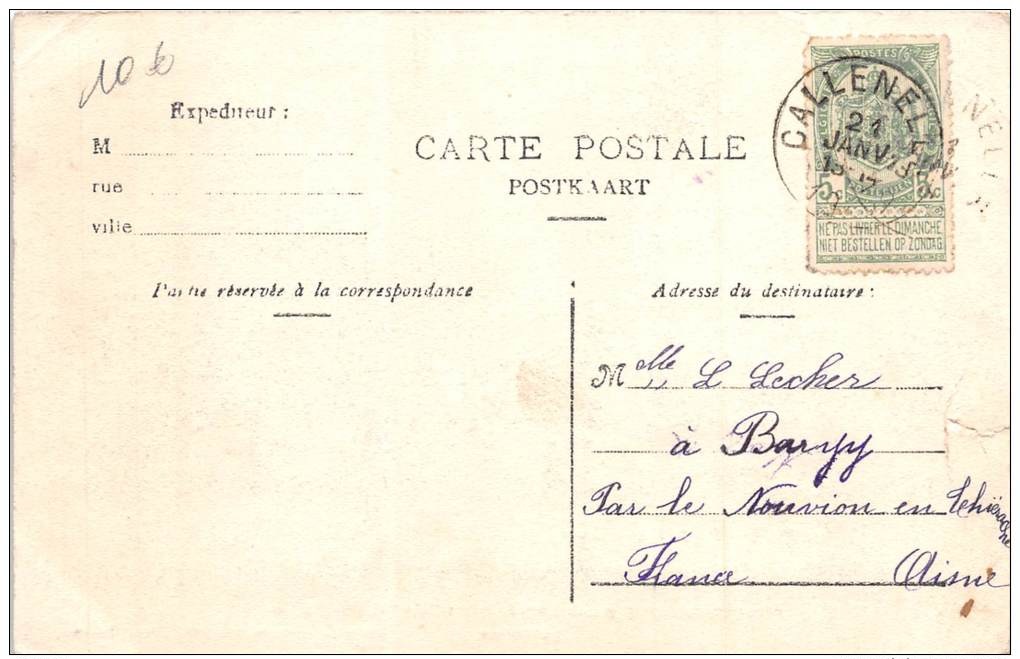 10
Expediteur :
M
rue
ville
CARTE POSTALE
POSTKAART
POSTES
CALLENELLE
21
JANV
5c 5c
POSTERIJEN
NE PAS LIVRER LE DIMANCHE
NIET BESTELLEN OP ZONDAG
NELL
Partie réservée à la correspondance
Adresse du destinataire :
Melle L Lecher
à Barzy
Par le Nouvion en Thiérache
France Aisne